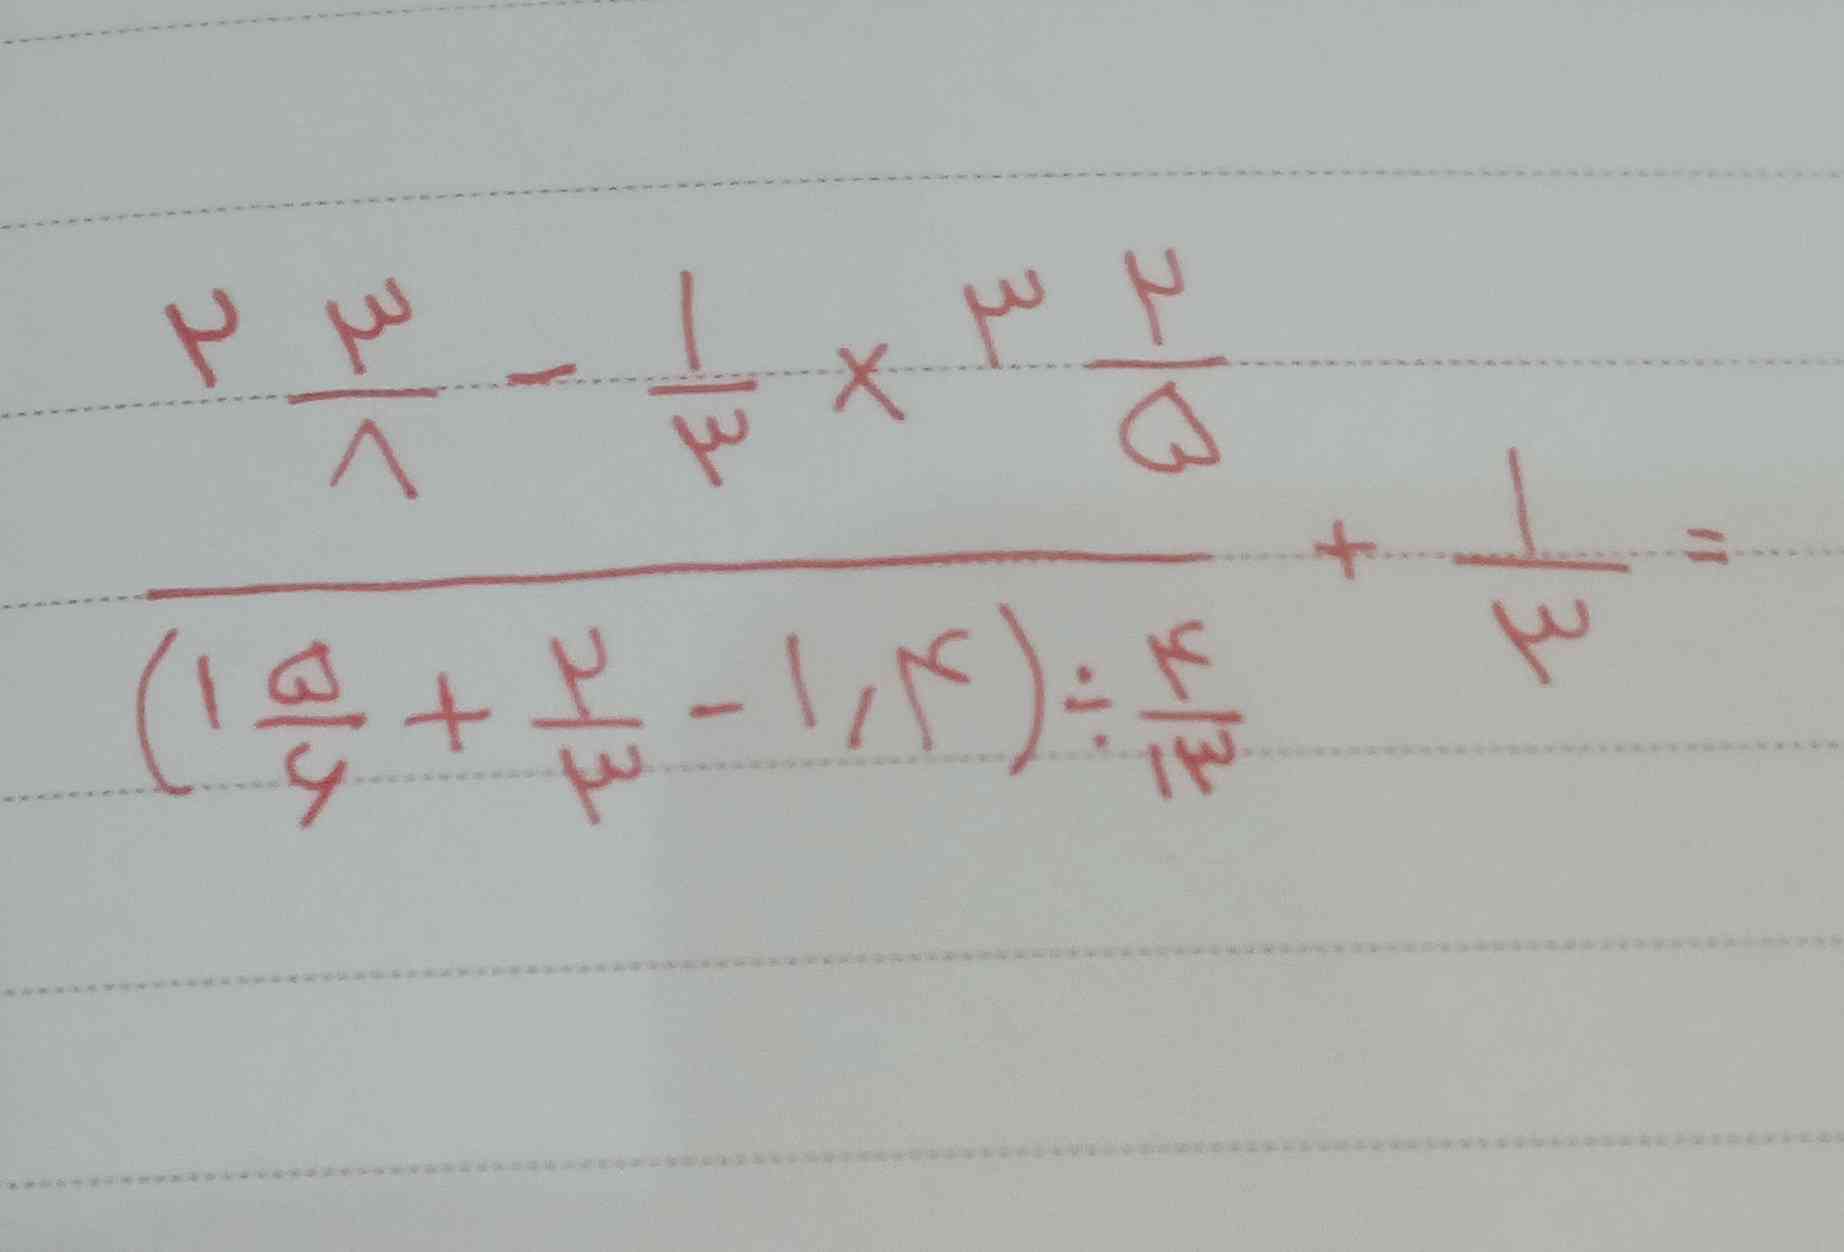 ۲ ۳/۸ - ۱/۳ × ۳ ۲/۵
+ ۱/۳ =
(۱ ۵/۶ + ۲/۳ - ۱,۴) ÷ ۴/۱۳